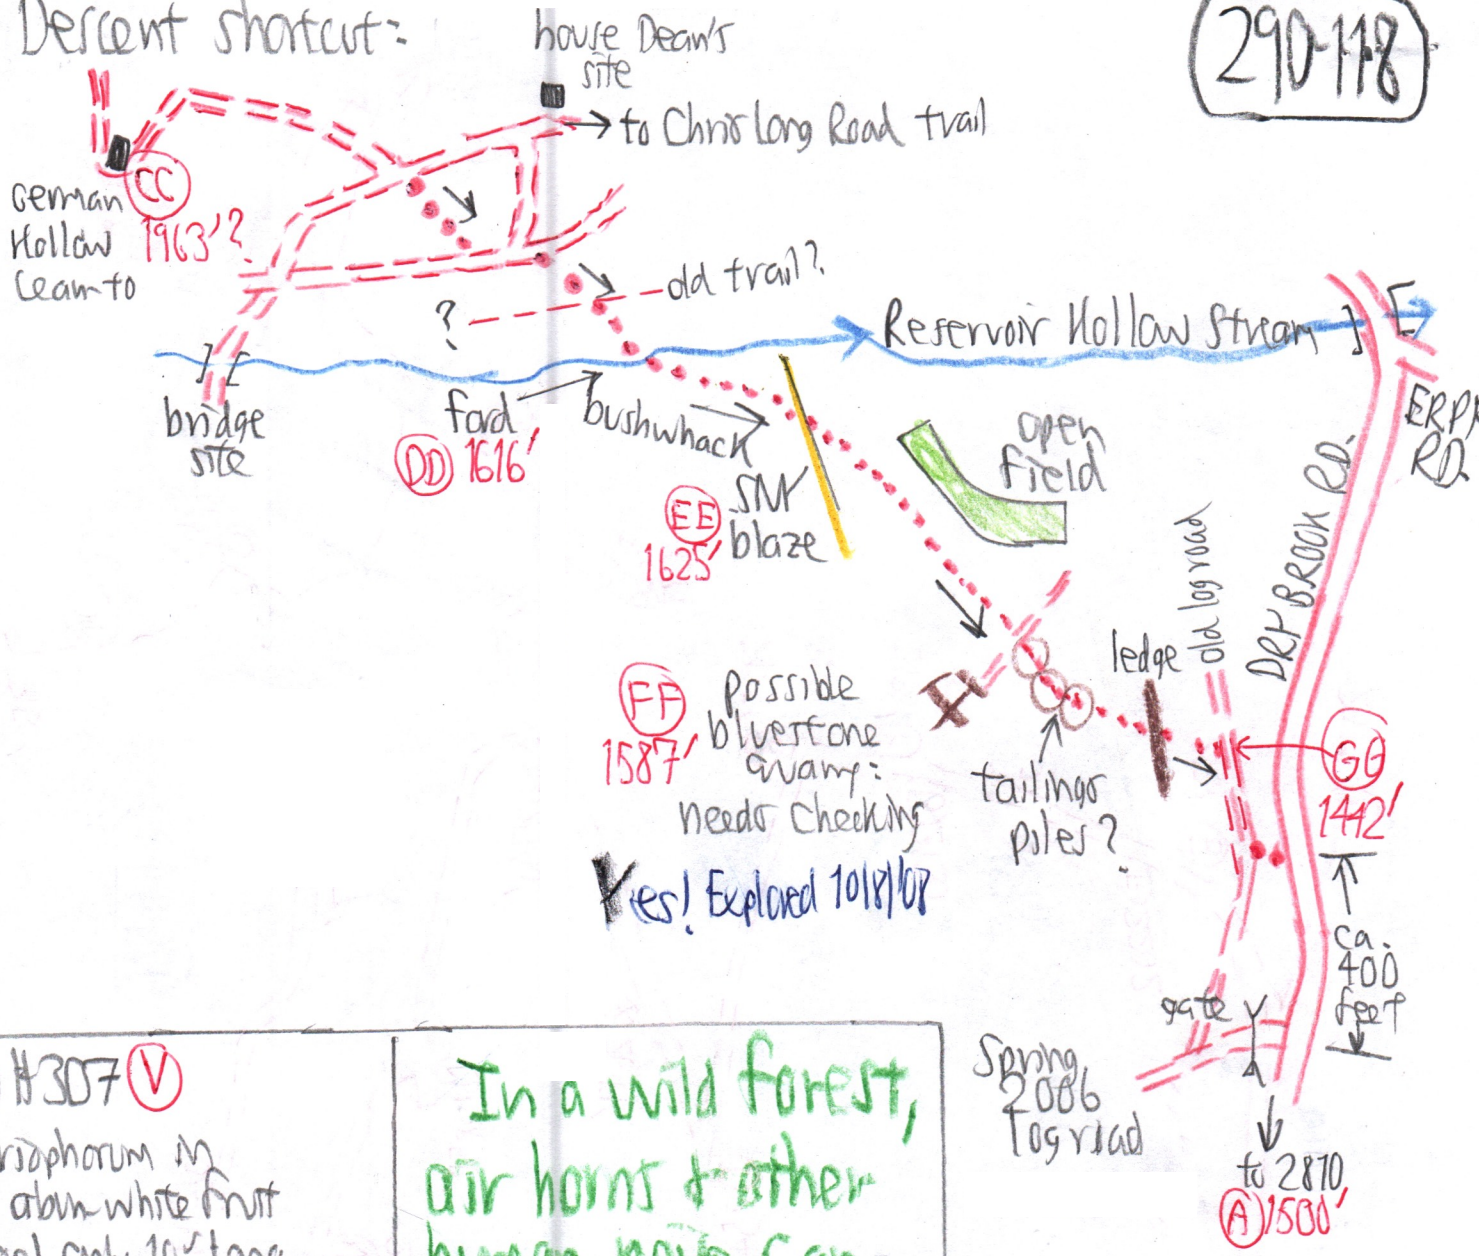 Descent shortcut:
290-118
house Dean's
site
→ to Chris Long Road trail
German
Hollow
Leanto
CC
1963'?
old trail?
?
Reservoir Hollow Stream
bridge
site
ford
DD 1616'
bushwhack
EE
1625'
SNY
blaze
open
field
DRY BROOK RD.
RD.
old log road
ledge
FF
1587'
possible
bluestone
quarry:
needs checking
Yes! Explored 10/8/08
tailings
piles?
GG
1442'
ca.
400
feet
gate
Spring
2006
log road
to 2810
A 1500'
#307 V
in
white fruit
In a wild forest,
air horns & other
human